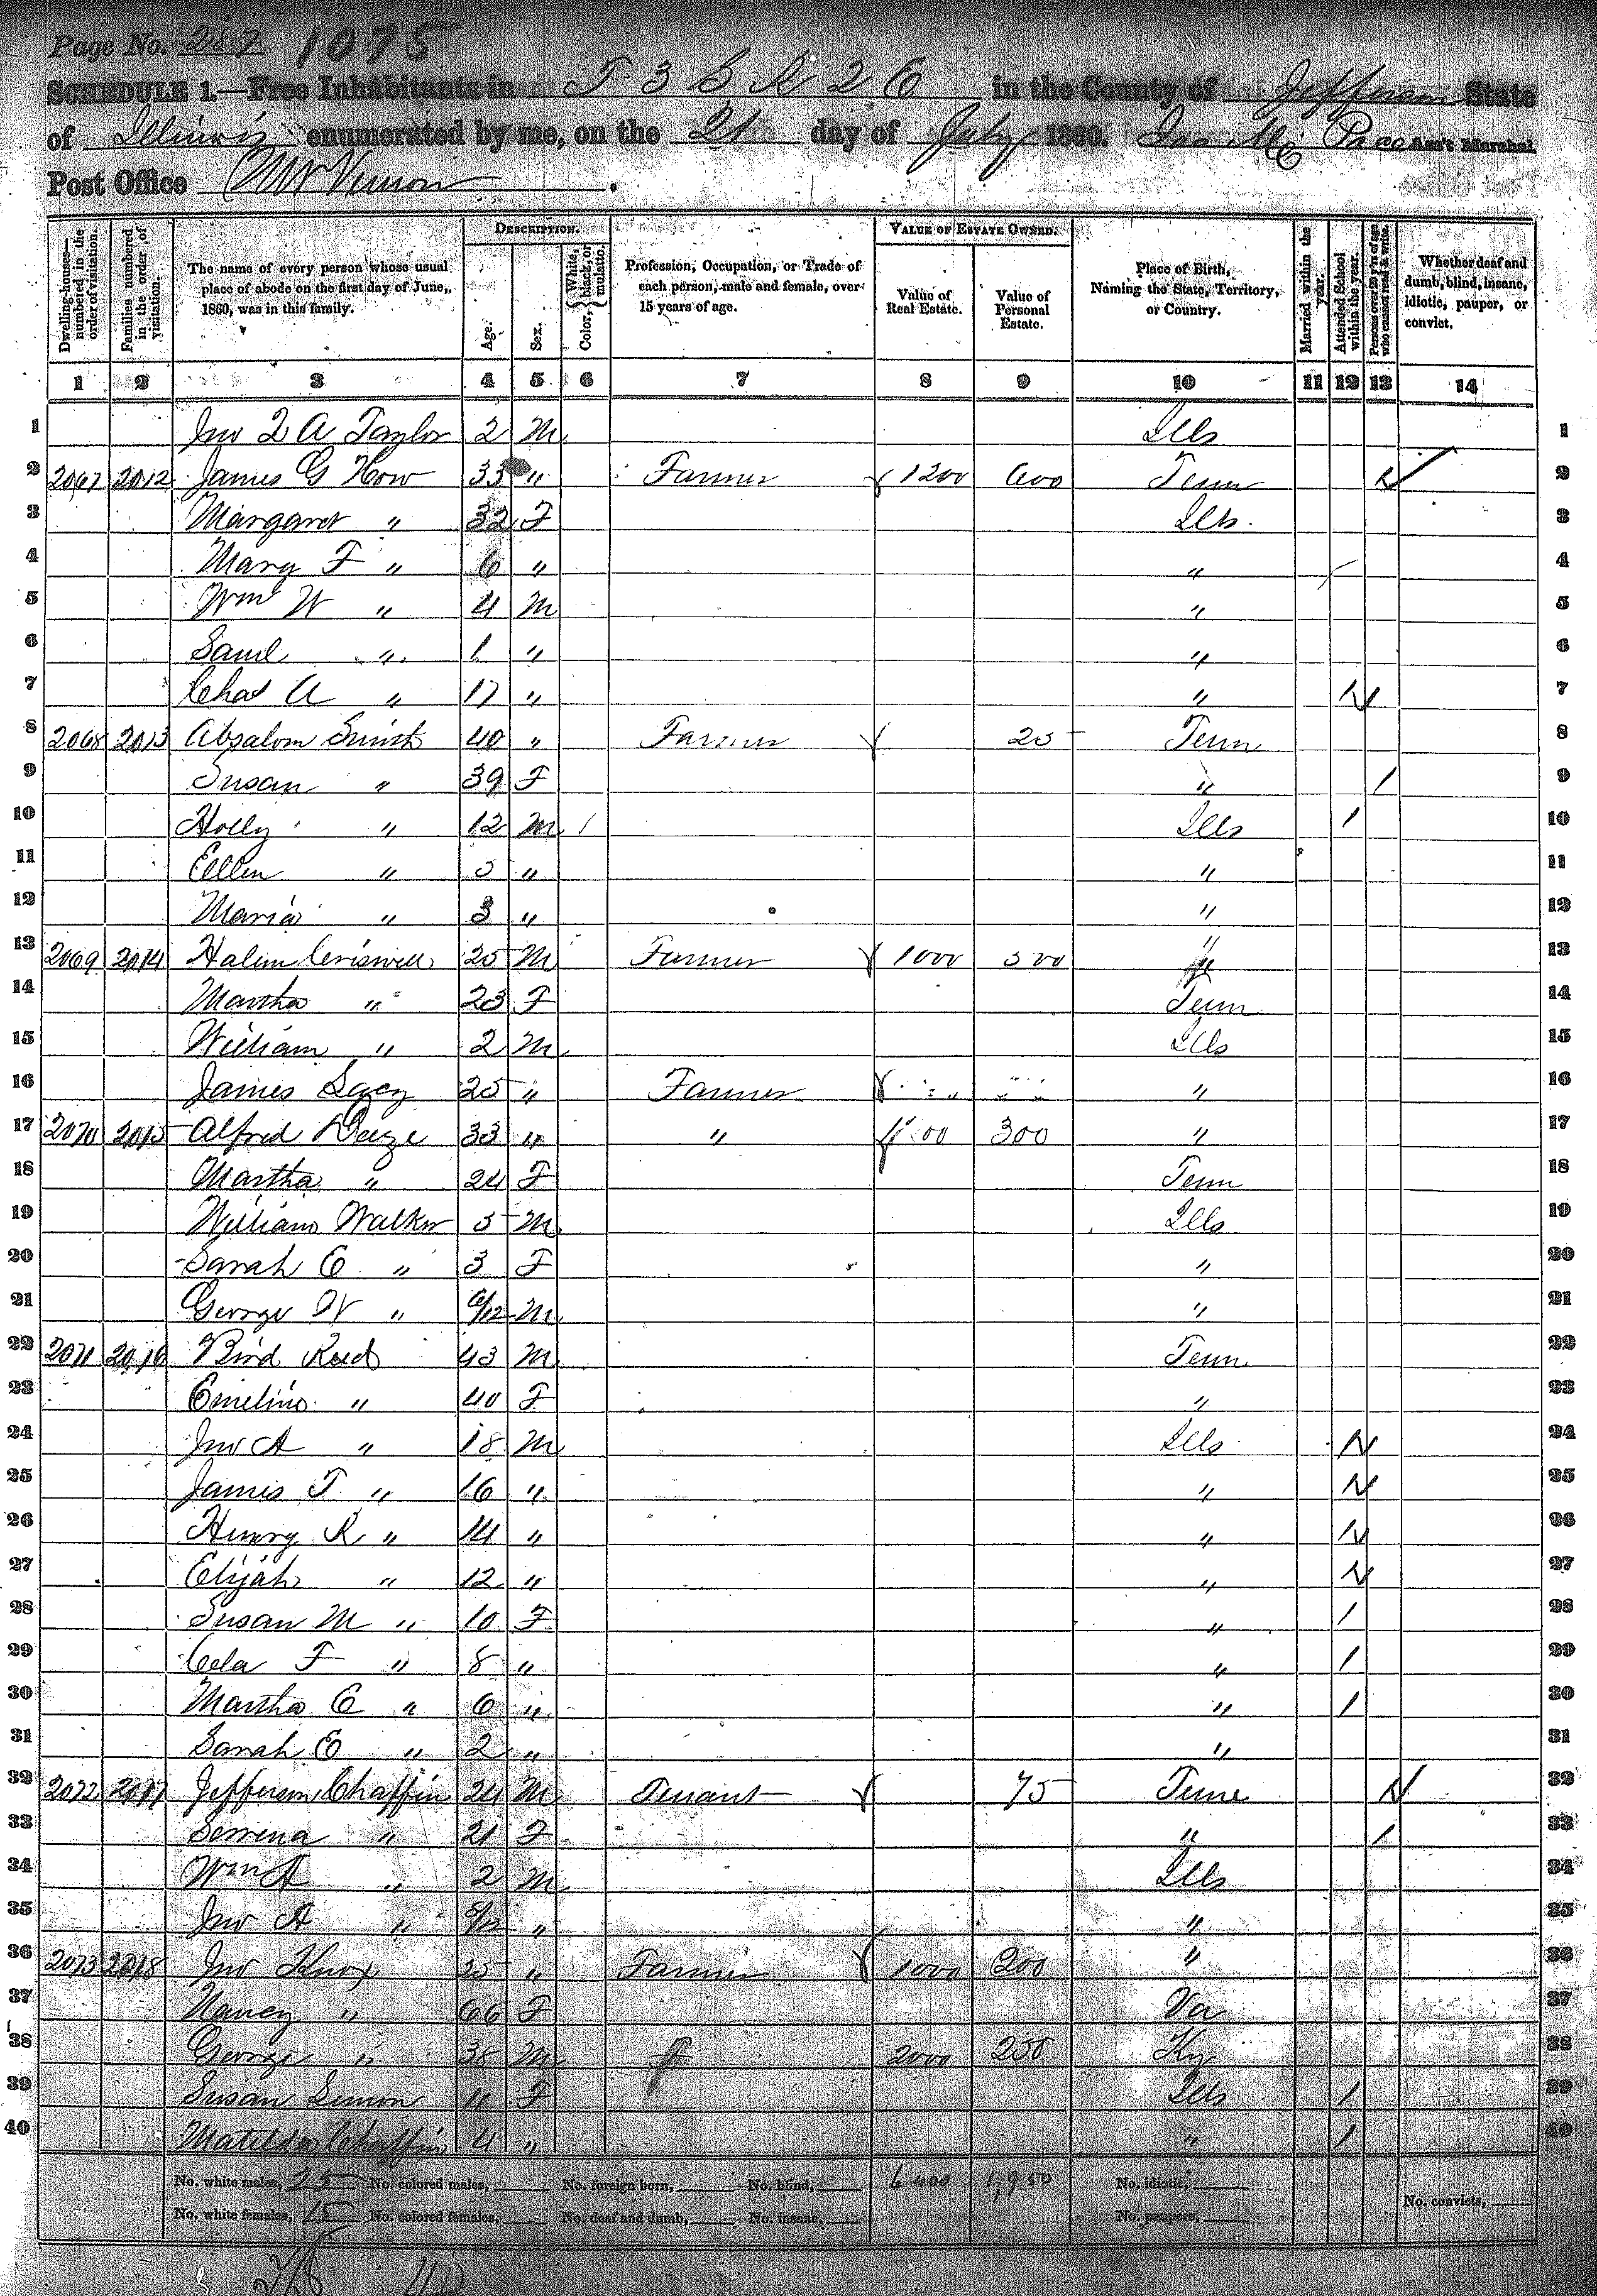 Page No. 287 1075
SCHEDULE 1.—Free Inhabitants in T 3 S R 2 E in the County of Jefferson State
of Illinois enumerated by me, on the 21 day of July 1860. Jno Mc Pace Ass't Marshal.
Post Office Mt Vernon.
Dwelling-houses—numbered in the order of visitation. Families numbered in the order of visitation. The name of every person whose usual place of abode on the first day of June, 1860, was in this family. DESCRIPTION. Age. Sex. Color, { White, black, or mulatto. Profession, Occupation, or Trade of each person, male and female, over 15 years of age. VALUE OF ESTATE OWNED. Value of Real Estate. Value of Personal Estate. Place of Birth, Naming the State, Territory, or Country. Married within the year. Attended School within the year. Persons over 20 y'rs of age who cannot read & write. Whether deaf and dumb, blind, insane, idiotic, pauper, or convict.
1 2 3 4 5 6 7 8 9 10 11 12 13 14
1 Jno Q A Taylor 2 M Ills 1
2 2067 2012 James G How 33 " Farmer 1200 600 Tenn 2
3 Margaret " 32 F Ills 3
4 Mary F " 6 " " 4
5 Wm W " 4 M " 5
6 Saml " 1 " " 6
7 Chas A " 17 " " 1 7
8 2068 2013 Absalom Smith 40 " Farmer 25 Tenn 8
9 Susan " 39 F " 1 9
10 Holly " 12 M 1 Ills 1 10
11 Ellen " 5 " " 11
12 Maria " 3 " " 12
13 2069 2014 Criswell 25 M Farmer 1000 300 " 13
14 Martha " 23 F Tenn 14
15 William " 2 M Ills 15
16 James 25 " Farmer " 16
17 2070 2015 Alfred 33 " " 300 " 17
18 Martha " 24 F Tenn 18
19 William Walker 5 M Ills 19
20 Sarah E " 3 F " 20
21 George W " 6/12 M " 21
22 2071 2016 Bird Reed 43 M Tenn 22
23 Emeline " 40 F " 23
24 Jno A " 18 M Ills 1 24
25 James T " 16 " " 1 25
26 Henry R " 14 " " 1 26
27 Elijah " 12 " " 1 27
28 Susan M " 10 F " 1 28
29 Cela F " 8 " " 1 29
30 Martha E " 6 " " 1 30
31 Sarah E " 2 " " 31
32 2072 2017 Jefferson Chaffin 24 M Tenant 75 Tenn 1 32
33 Serrena " 21 F " 1 33
34 Wm A " 2 M Ills 34
35 Jno A " 5/12 " " 35
36 2073 2018 Jno Knox 25 " Farmer 1000 200 " 36
37 Nancy " 66 F Va 37
38 George " 38 M 2000 250 Ky 38
39 Susan Simon 11 F Ills 1 39
40 Matilda Chaffin 4 " " 1 40
No. white males, 25 No. colored males, No. foreign born, No. blind, 6400 1,950 No. idiotic,
No. white females, 15 No. colored females, No. deaf and dumb, No. insane, No. paupers, No. convicts,